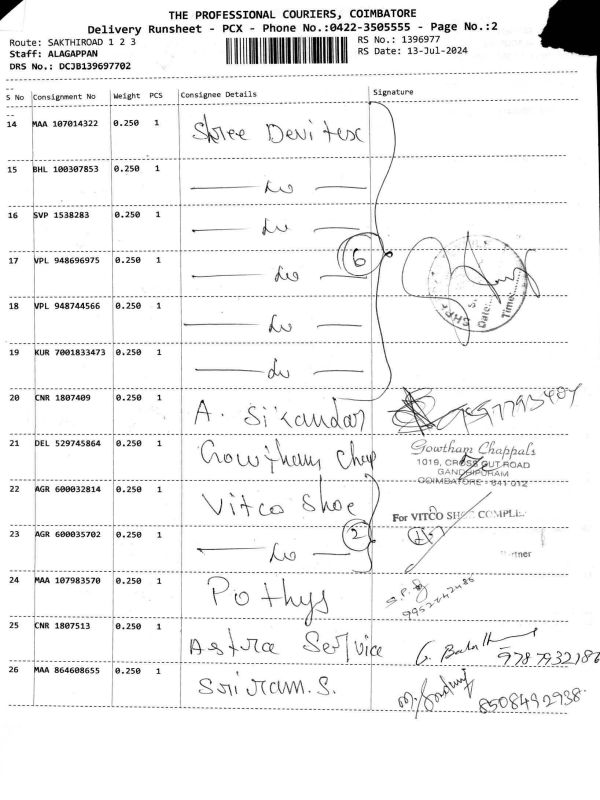 THE PROFESSIONAL COURIERS, COIMBATORE
Delivery Runsheet - PCX - Phone No.:0422-3505555 - Page No.:2
Route: SAKTHIROAD 1 2 3 RS No.: 1396977
Staff: ALAGAPPAN RS Date: 13-Jul-2024
DRS No.: DCJB139697702
S No Consignment No Weight PCS Consignee Details Signature
14 MAA 107014322 0.250 1 Shree Devi tex
15 BHL 100307853 0.250 1 — do —
16 SVP 1538283 0.250 1 — do —
17 VPL 948696975 0.250 1 — do — 6
Date:
Time:
18 VPL 948744566 0.250 1 — do —
19 KUR 7001833473 0.250 1 — do —
20 CNR 1807409 0.250 1 A. Sikandar
21 DEL 529745864 0.250 1 Gowtham Chap
Gowtham Chappals
1019, CROSS CUT ROAD
GANDHIPURAM
COIMBATORE - 641 012
22 AGR 600032814 0.250 1 Vitco Shoe
For VITCO
23 AGR 600035702 0.250 1 — do — 2
24 MAA 107983570 0.250 1 Pothys
25 CNR 1807513 0.250 1 Astra Service 9787932186
26 MAA 864608655 0.250 1 Sriram.S. 8508492938